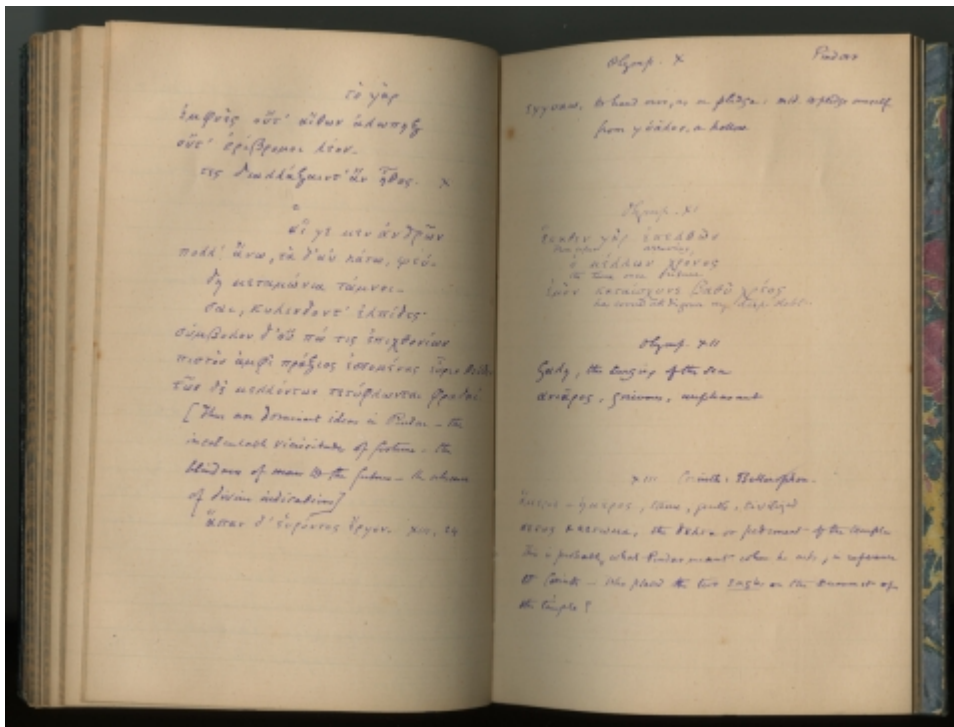 τὸ γὰρ
ἐμφυὲς οὔτ' αἴθων ἀλωπηξ
οὔτ' ἐρίβρομοι λέον-
τες διαλλάξαιντ' ἂν ἦθος. X
αἵ γε μεν ἀνδρῶν
πολλ' ἄνω, τὰ δ' αὖ κάτω, ψεύ-
δη μεταμώνια τάμνοι-
σαι, κυλινδοντ' ἐλπίδες.
σύμβολον δ' οὔ πώ τις ἐπιχθονίων
πιστὸν ἀμφὶ πράξιος ἐσσομένας εὗρεν
τῶν δὲ μελλόντων τετύφλωνται φραδαί
[These are dominant ideas in Pindar - the
incalculable vicissitudes of fortune - the
blindness of man to the future - the absence
of divine indications]
ἅπαν δ' εὑρόντος ἔργον. XIII, 24
Olymp. X Pindar
εγγυαω, to hand over, as a pledge: mid. to pledge oneself
from γύαλον, a hollow.
Olymp. XI
ἕκαθεν γὰρ ἐπελθὼν
from afar
ὁ μέλλων χρόνος
the time once future
ἐμὸν καταισχυνε βαθὺ χρέος
my deep debt.
Olymp. XII
the surging of the sea
ανιᾱρος, grievous, unpleasant
XIII Corinth: Bellerophon.
ἥμερος, tame, gentle, civilized
the or pediment of the temple
this is probably what Pindar meant when he asks, in reference
to Corinth - Who placed the two eagles on the summit of
the temple?